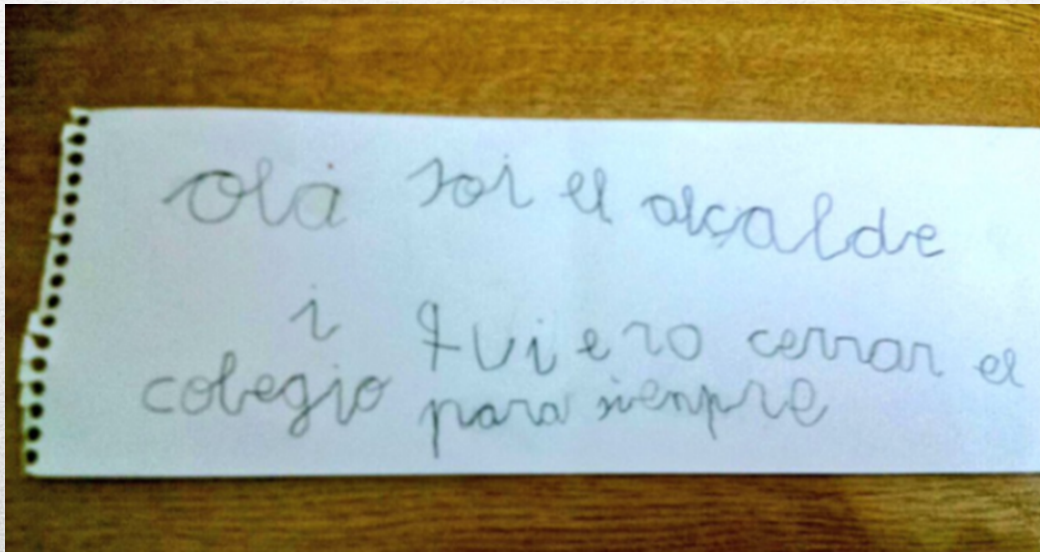 ola soi el alcalde
i quiero cerrar el
colegio para sienpre